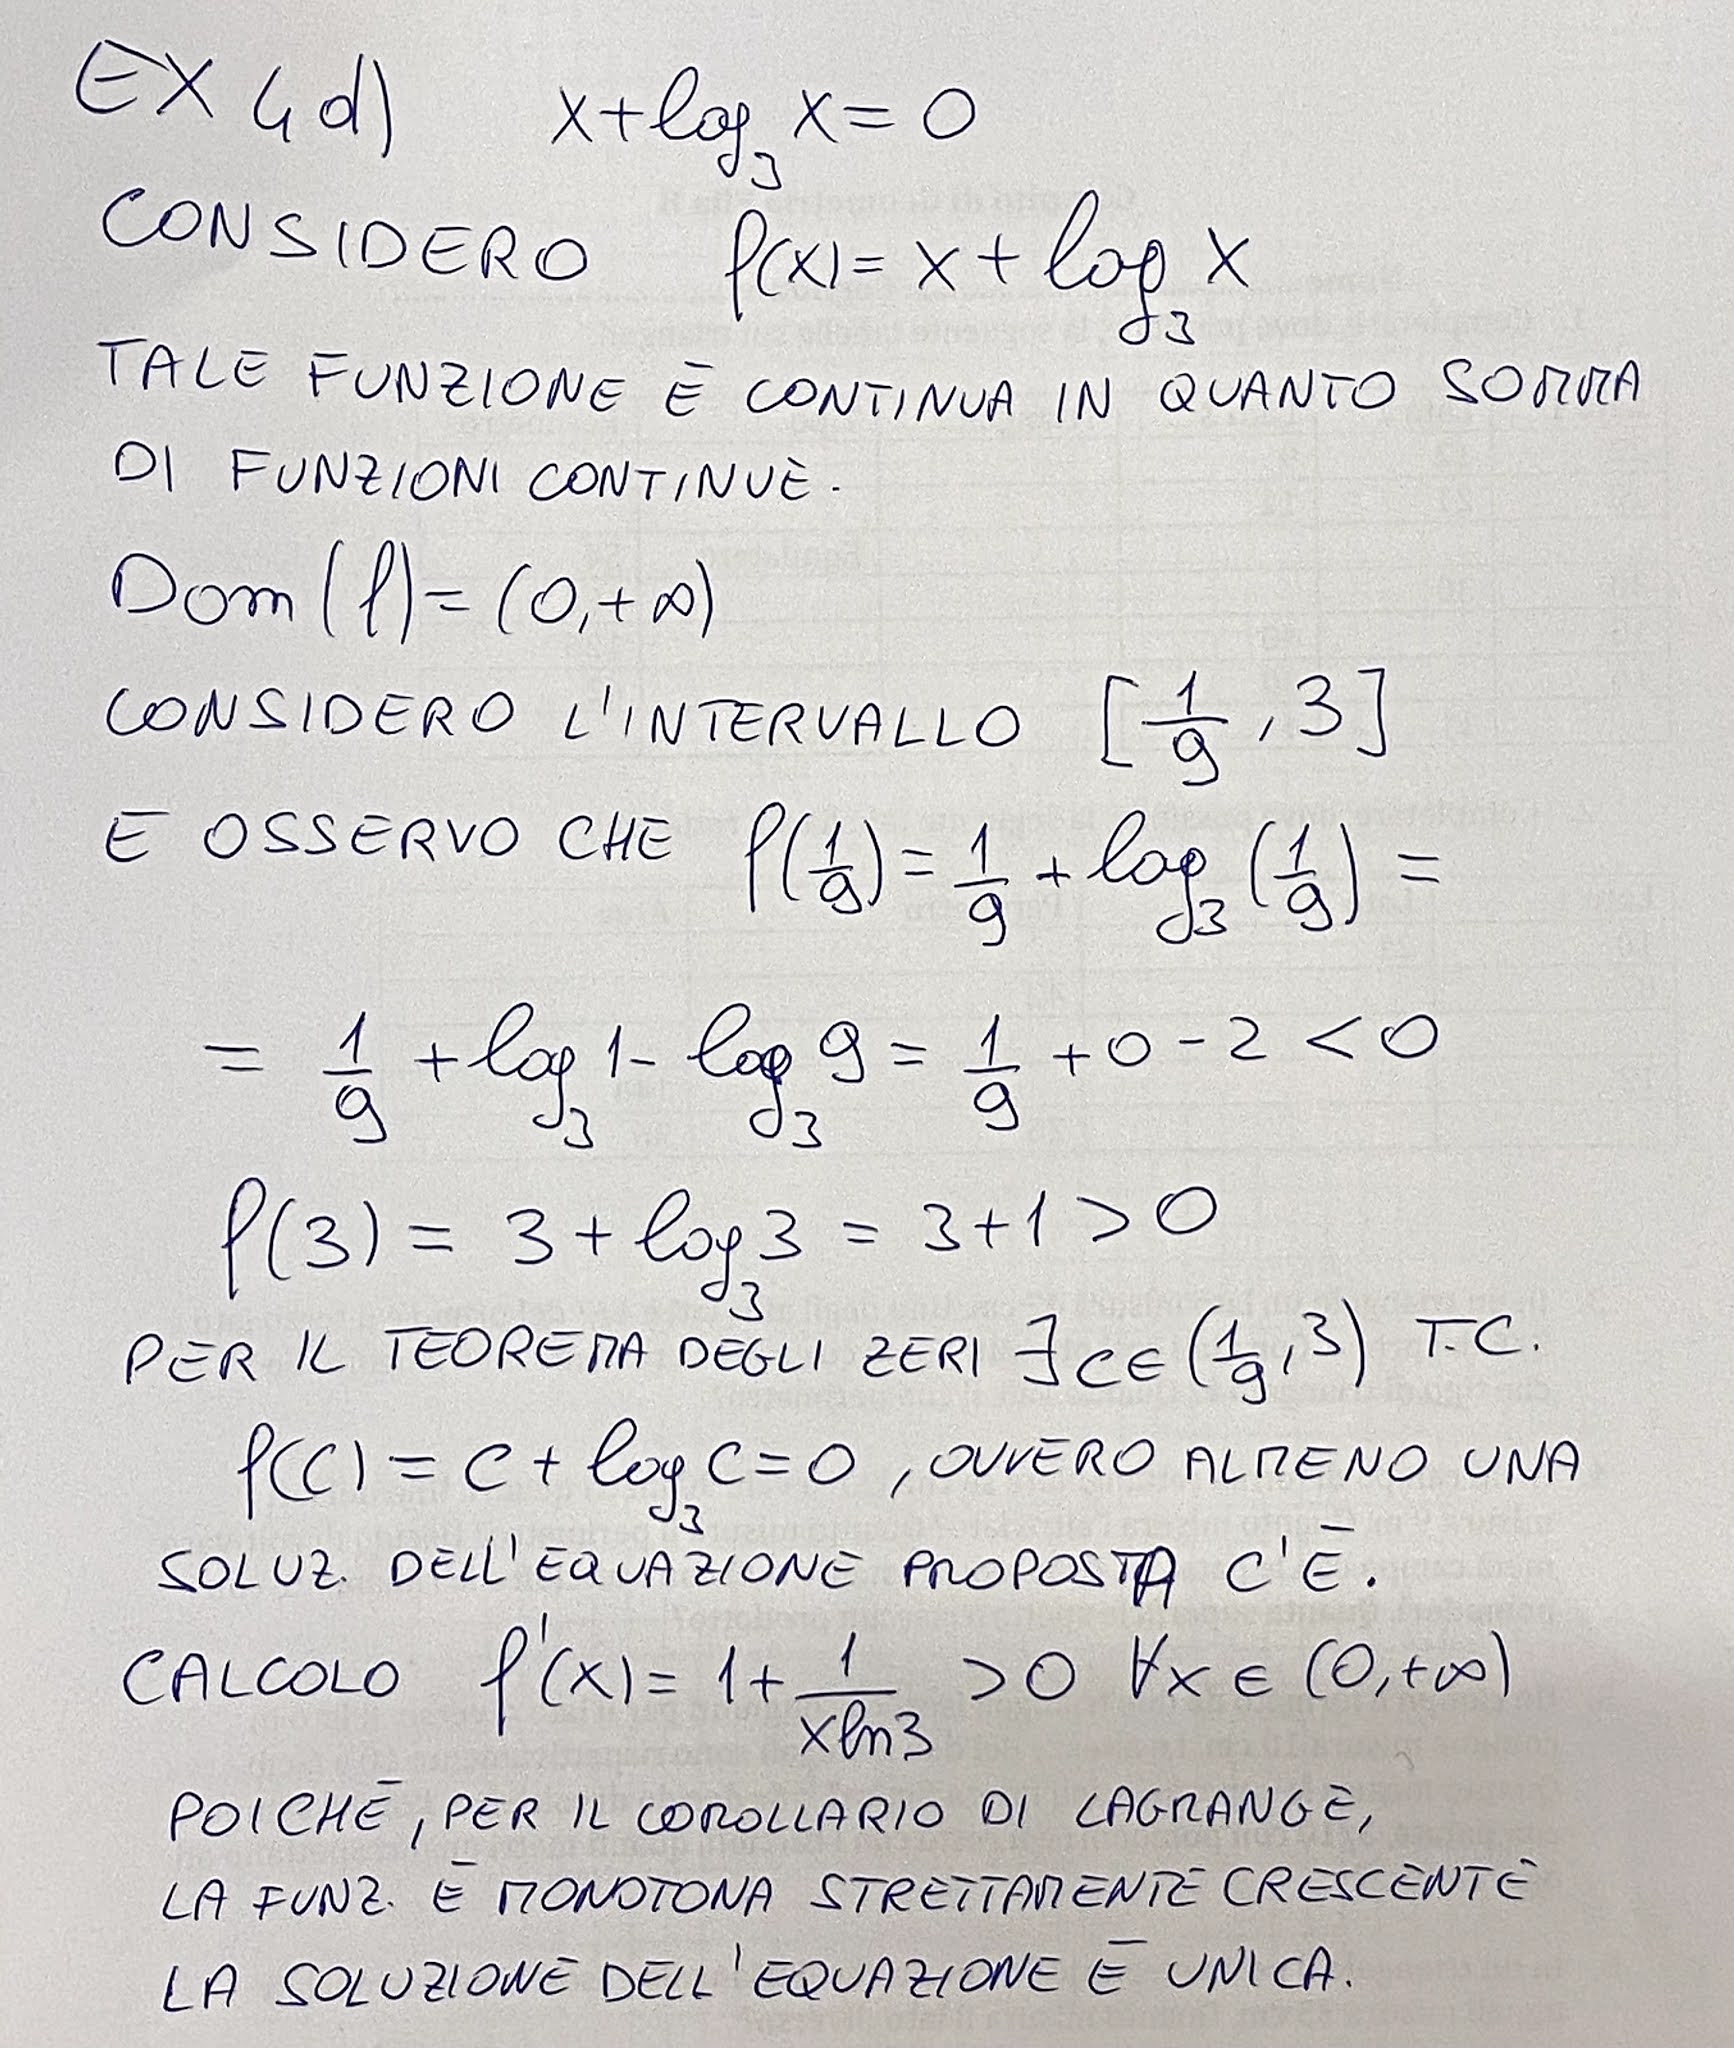 EX 4 d) x+log₃ x = 0
CONSIDERO f(x) = x + log₃ x
TALE FUNZIONE È CONTINUA IN QUANTO SOMMA
DI FUNZIONI CONTINUE.
Dom (f) = (0,+∞)
CONSIDERO L'INTERVALLO [1/9, 3]
E OSSERVO CHE f(1/9) = 1/9 + log₃ (1/9) =
= 1/9 + log₃ 1 - log₃ 9 = 1/9 + 0 - 2 < 0
f(3) = 3 + log₃ 3 = 3+1 > 0
PER IL TEOREMA DEGLI ZERI ∃ c ∈ (1/9, 3) T.C.
f(c) = c + log₃ c = 0, OVVERO ALMENO UNA
SOLUZ. DELL'EQUAZIONE PROPOSTA C'È.
CALCOLO f'(x) = 1 + 1/(x ln 3) > 0 ∀x ∈ (0,+∞)
POICHÉ, PER IL COROLLARIO DI LAGRANGE,
LA FUNZ. È MONOTONA STRETTAMENTE CRESCENTE
LA SOLUZIONE DELL'EQUAZIONE È UNICA.